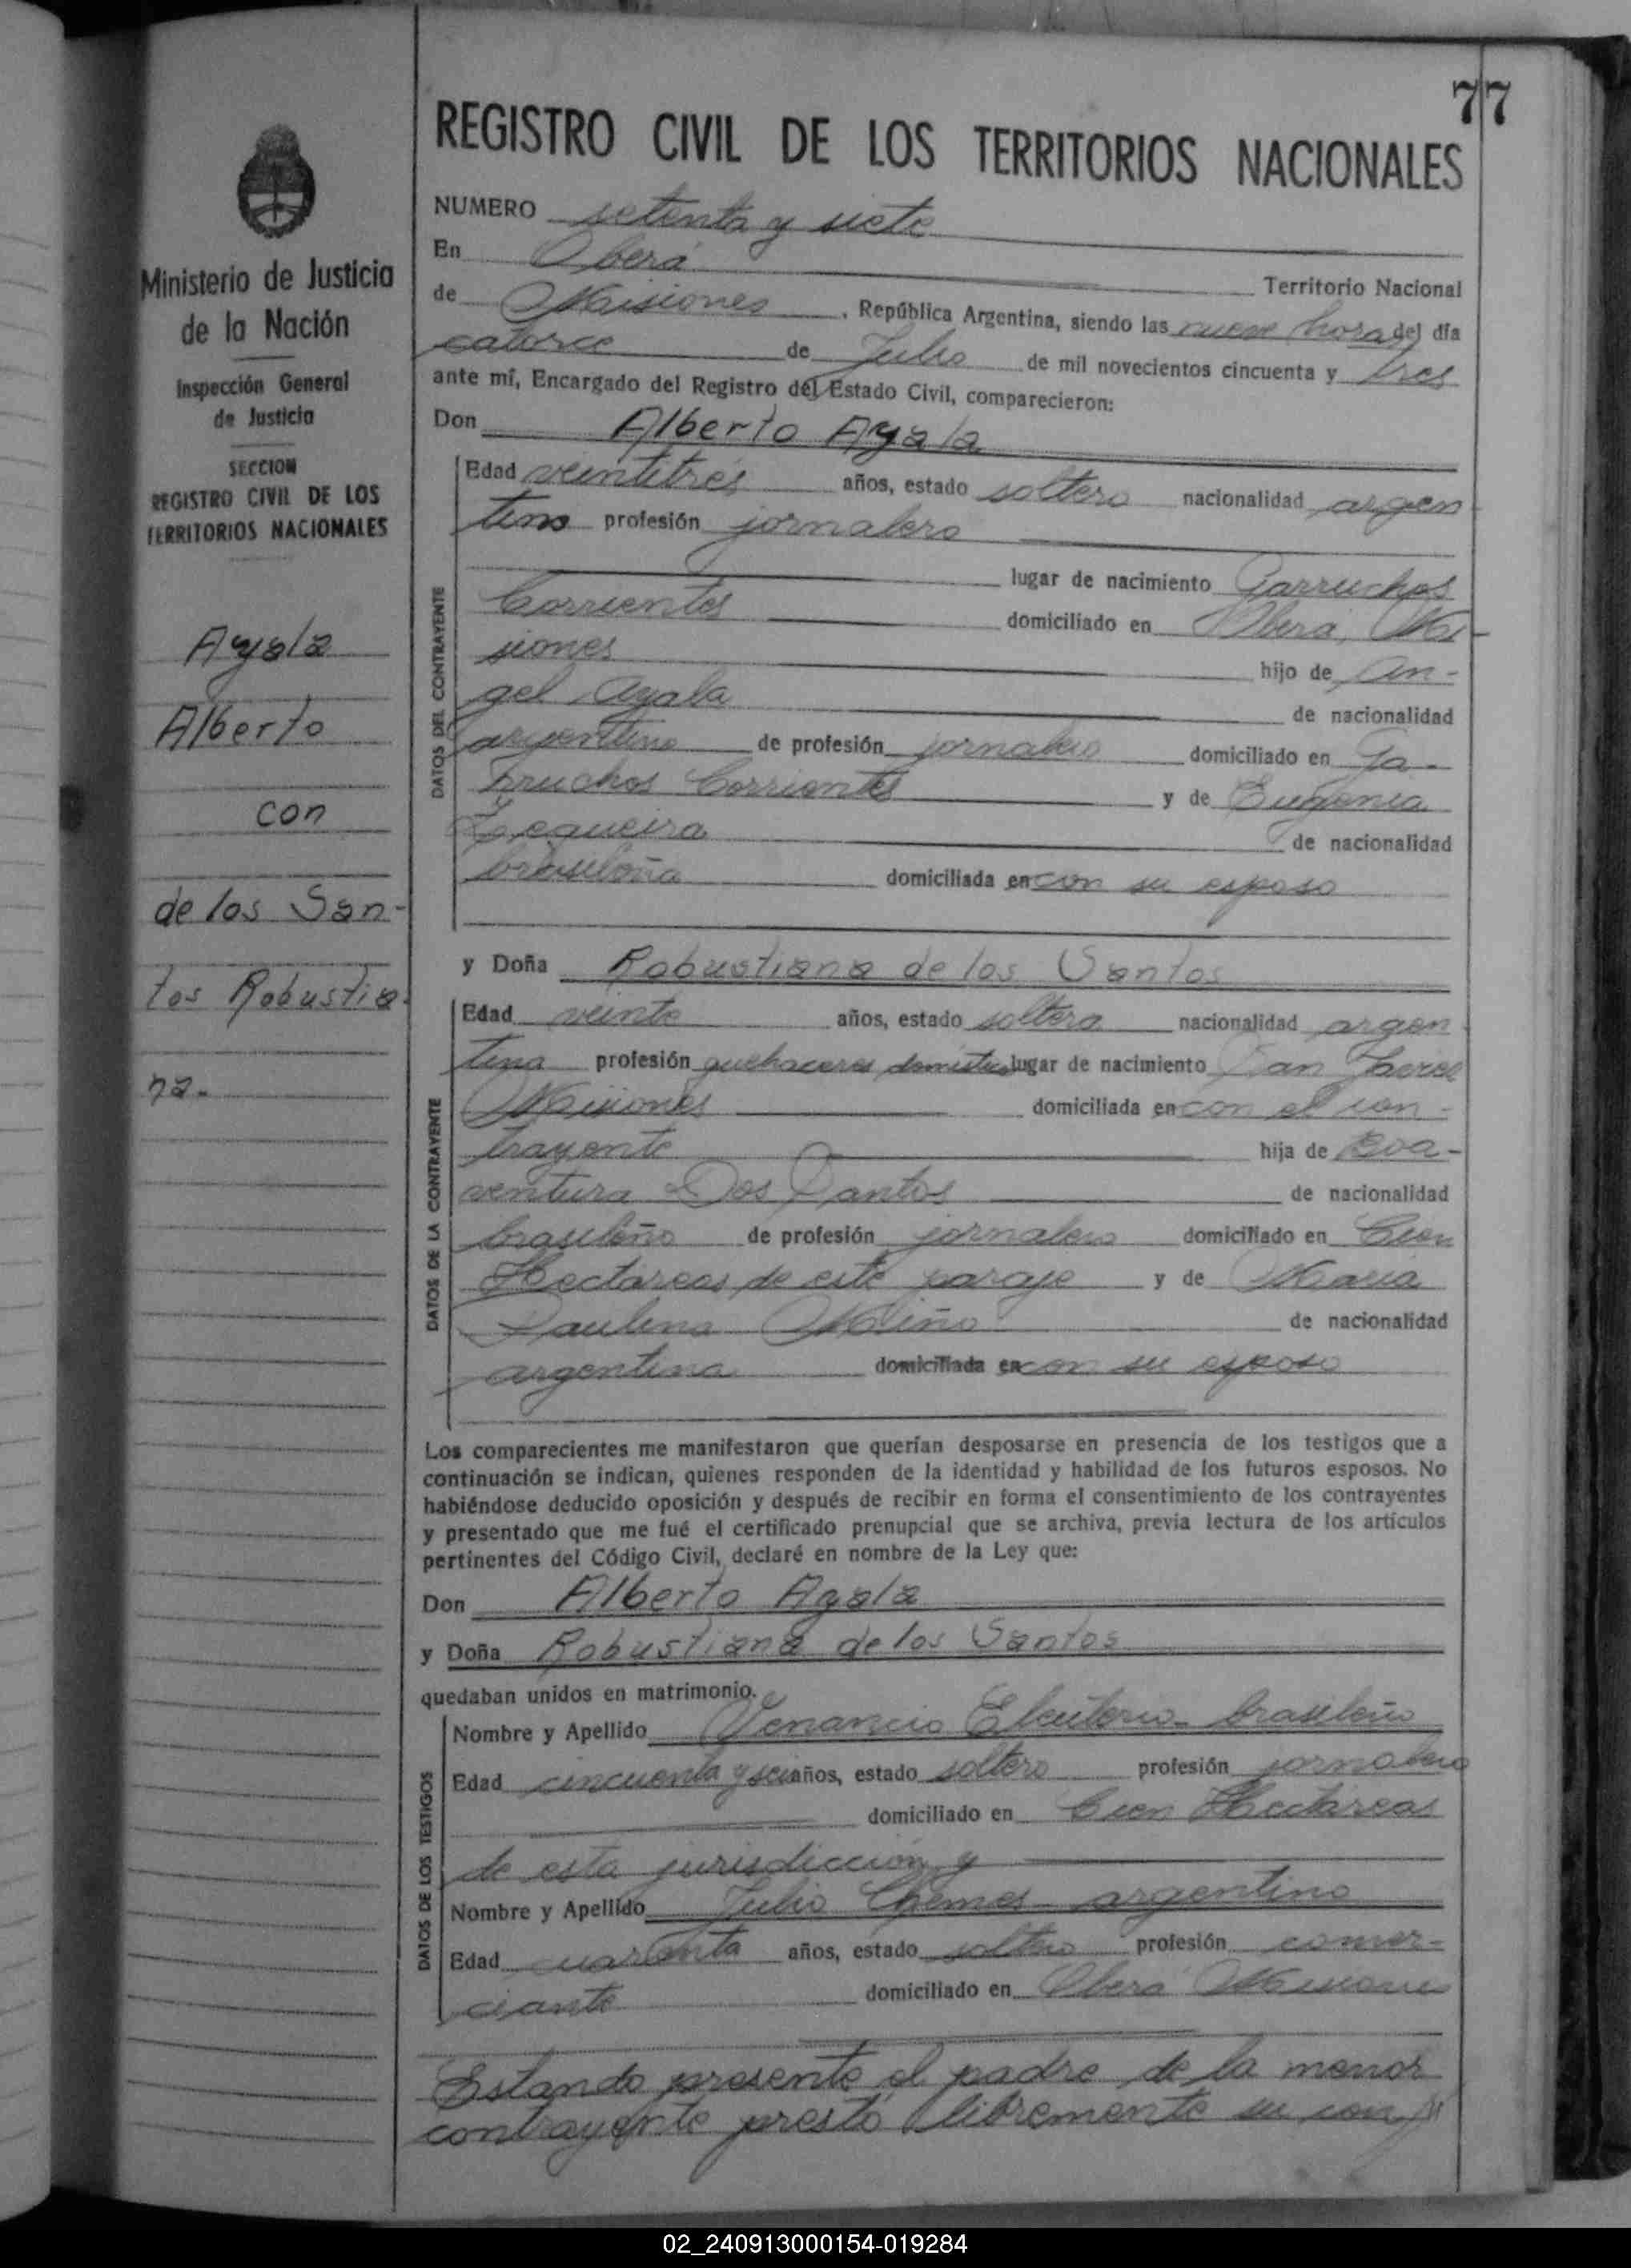 77
REGISTRO CIVIL DE LOS TERRITORIOS NACIONALES
Ministerio de Justicia
de la Nación
Inspección General
de Justicia
SECCION
REGISTRO CIVIL DE LOS
TERRITORIOS NACIONALES
Ayala
Alberto
con
de los San-
tos Robustia
na.
NUMERO setenta y siete
En Oberá Territorio Nacional
de Misiones, República Argentina, siendo las nueve horas del día
catorce de Julio de mil novecientos cincuenta y tres
ante mí, Encargado del Registro del Estado Civil, comparecieron:
Don Alberto Ayala
DATOS DEL CONTRAYENTE
Edad veintitrés años, estado soltero nacionalidad argen
tino profesión jornalero
lugar de nacimiento Garruchos
Corrientes domiciliado en Oberá, Mi-
siones hijo de An-
gel Ayala de nacionalidad
argentino de profesión jornalero domiciliado en Ga-
rruchos Corrientes y de Eugenia
Sequeira de nacionalidad
brasileña domiciliada en con su esposo
y Doña Robustiana de los Santos
DATOS DE LA CONTRAYENTE
Edad veinte años, estado soltera nacionalidad argen
tina profesión quehaceres domésticos lugar de nacimiento San Javier
Misiones domiciliada en con el con-
trayente hija de Boa-
ventura Dos Santos de nacionalidad
brasileño de profesión jornalero domiciliado en Cien
Hectareas de este paraje y de Maria
Paulina Miño de nacionalidad
argentina domiciliada en con su esposo
Los comparecientes me manifestaron que querían desposarse en presencia de los testigos que a
continuación se indican, quienes responden de la identidad y habilidad de los futuros esposos. No
habiéndose deducido oposición y después de recibir en forma el consentimiento de los contrayentes
y presentado que me fué el certificado prenupcial que se archiva, previa lectura de los artículos
pertinentes del Código Civil, declaré en nombre de la Ley que:
Don Alberto Ayala
y Doña Robustiana de los Santos
quedaban unidos en matrimonio.
DATOS DE LOS TESTIGOS
Nombre y Apellido Venancio Eleuterio- brasileño
Edad cincuenta y seis años, estado soltero profesión jornalero
domiciliado en Cien Hectáreas
de esta jurisdicción y
Nombre y Apellido Julio Chemes argentino
Edad cuarenta años, estado soltero profesión comer-
ciante domiciliado en Oberá Misiones
Estando presente el padre de la menor
contrayente prestó libremente su con
02_240913000154-019284